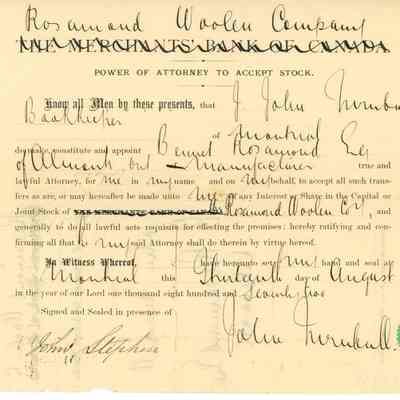 Rosamond Woolen Company
THE MERCHANTS' BANK OF CANADA
POWER OF ATTORNEY TO ACCEPT STOCK.
Know all Men by these presents, that I John Turnbull
Bookkeeper of Montreal
do make, constitute and appoint Bennett Rosamond Esq
of Almonte Ont — Manufacturer true and
lawful Attorney, for me in my name and on my behalf, to accept all such trans-
fers as are, or may hereafter be made unto me of any Interest or Share in the Capital or
Joint Stock of THE MERCHANTS BANK OF CANADA Rosamond Woolen Coy, and
generally to do all lawful acts requisite for effecting the premises: hereby ratifying and con-
firming all that my said Attorney shall do therein by virtue hereof.
In Witness Whereof, I have hereunto set my hand and seal at
Montreal this Thirteenth day of August
in the year of our Lord one thousand eight hundred and Seventy
Signed and Sealed in presence of
John Turnbull.
John Stephen